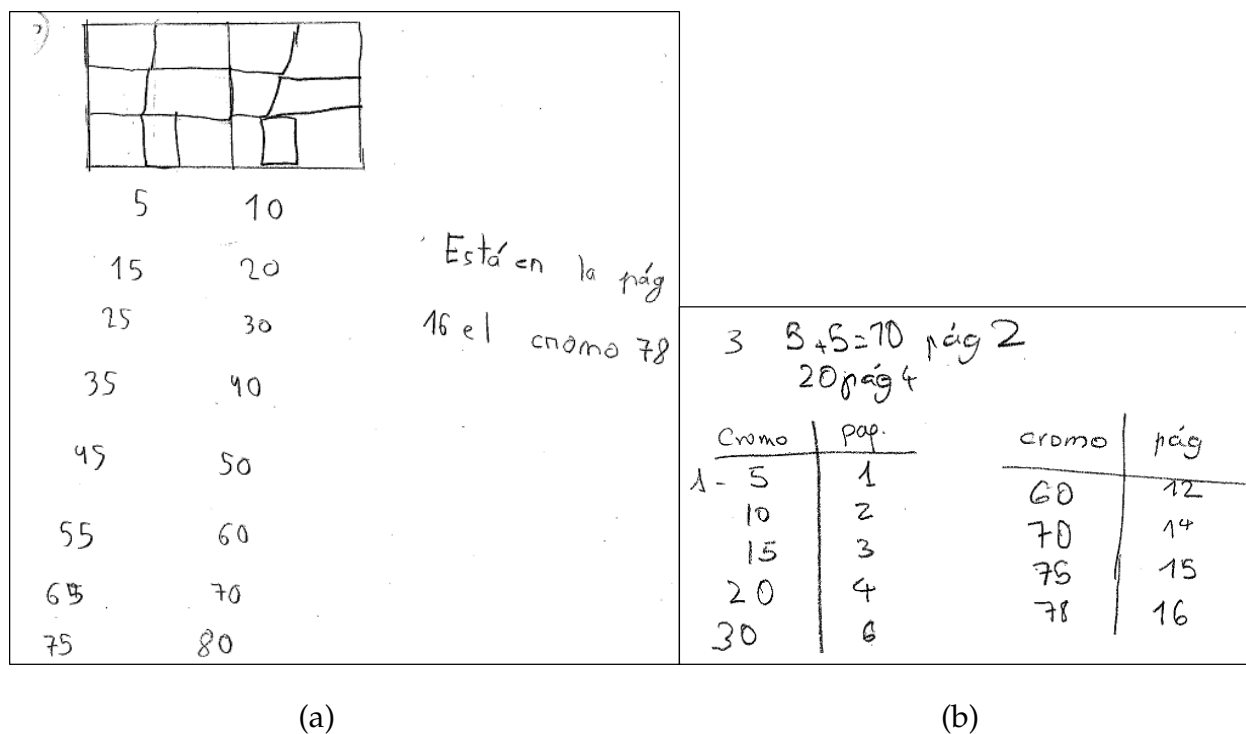 5 10
15 20
25 30
35 40
45 50
55 60
65 70
75 80
Está en la pág
16 el cromo 78
(a)
3 5+5=10 pág 2
20 pág 4
Cromo pag.
1- 5 1
10 2
15 3
20 4
30 6
cromo pág
60 12
70 14
75 15
78 16
(b)